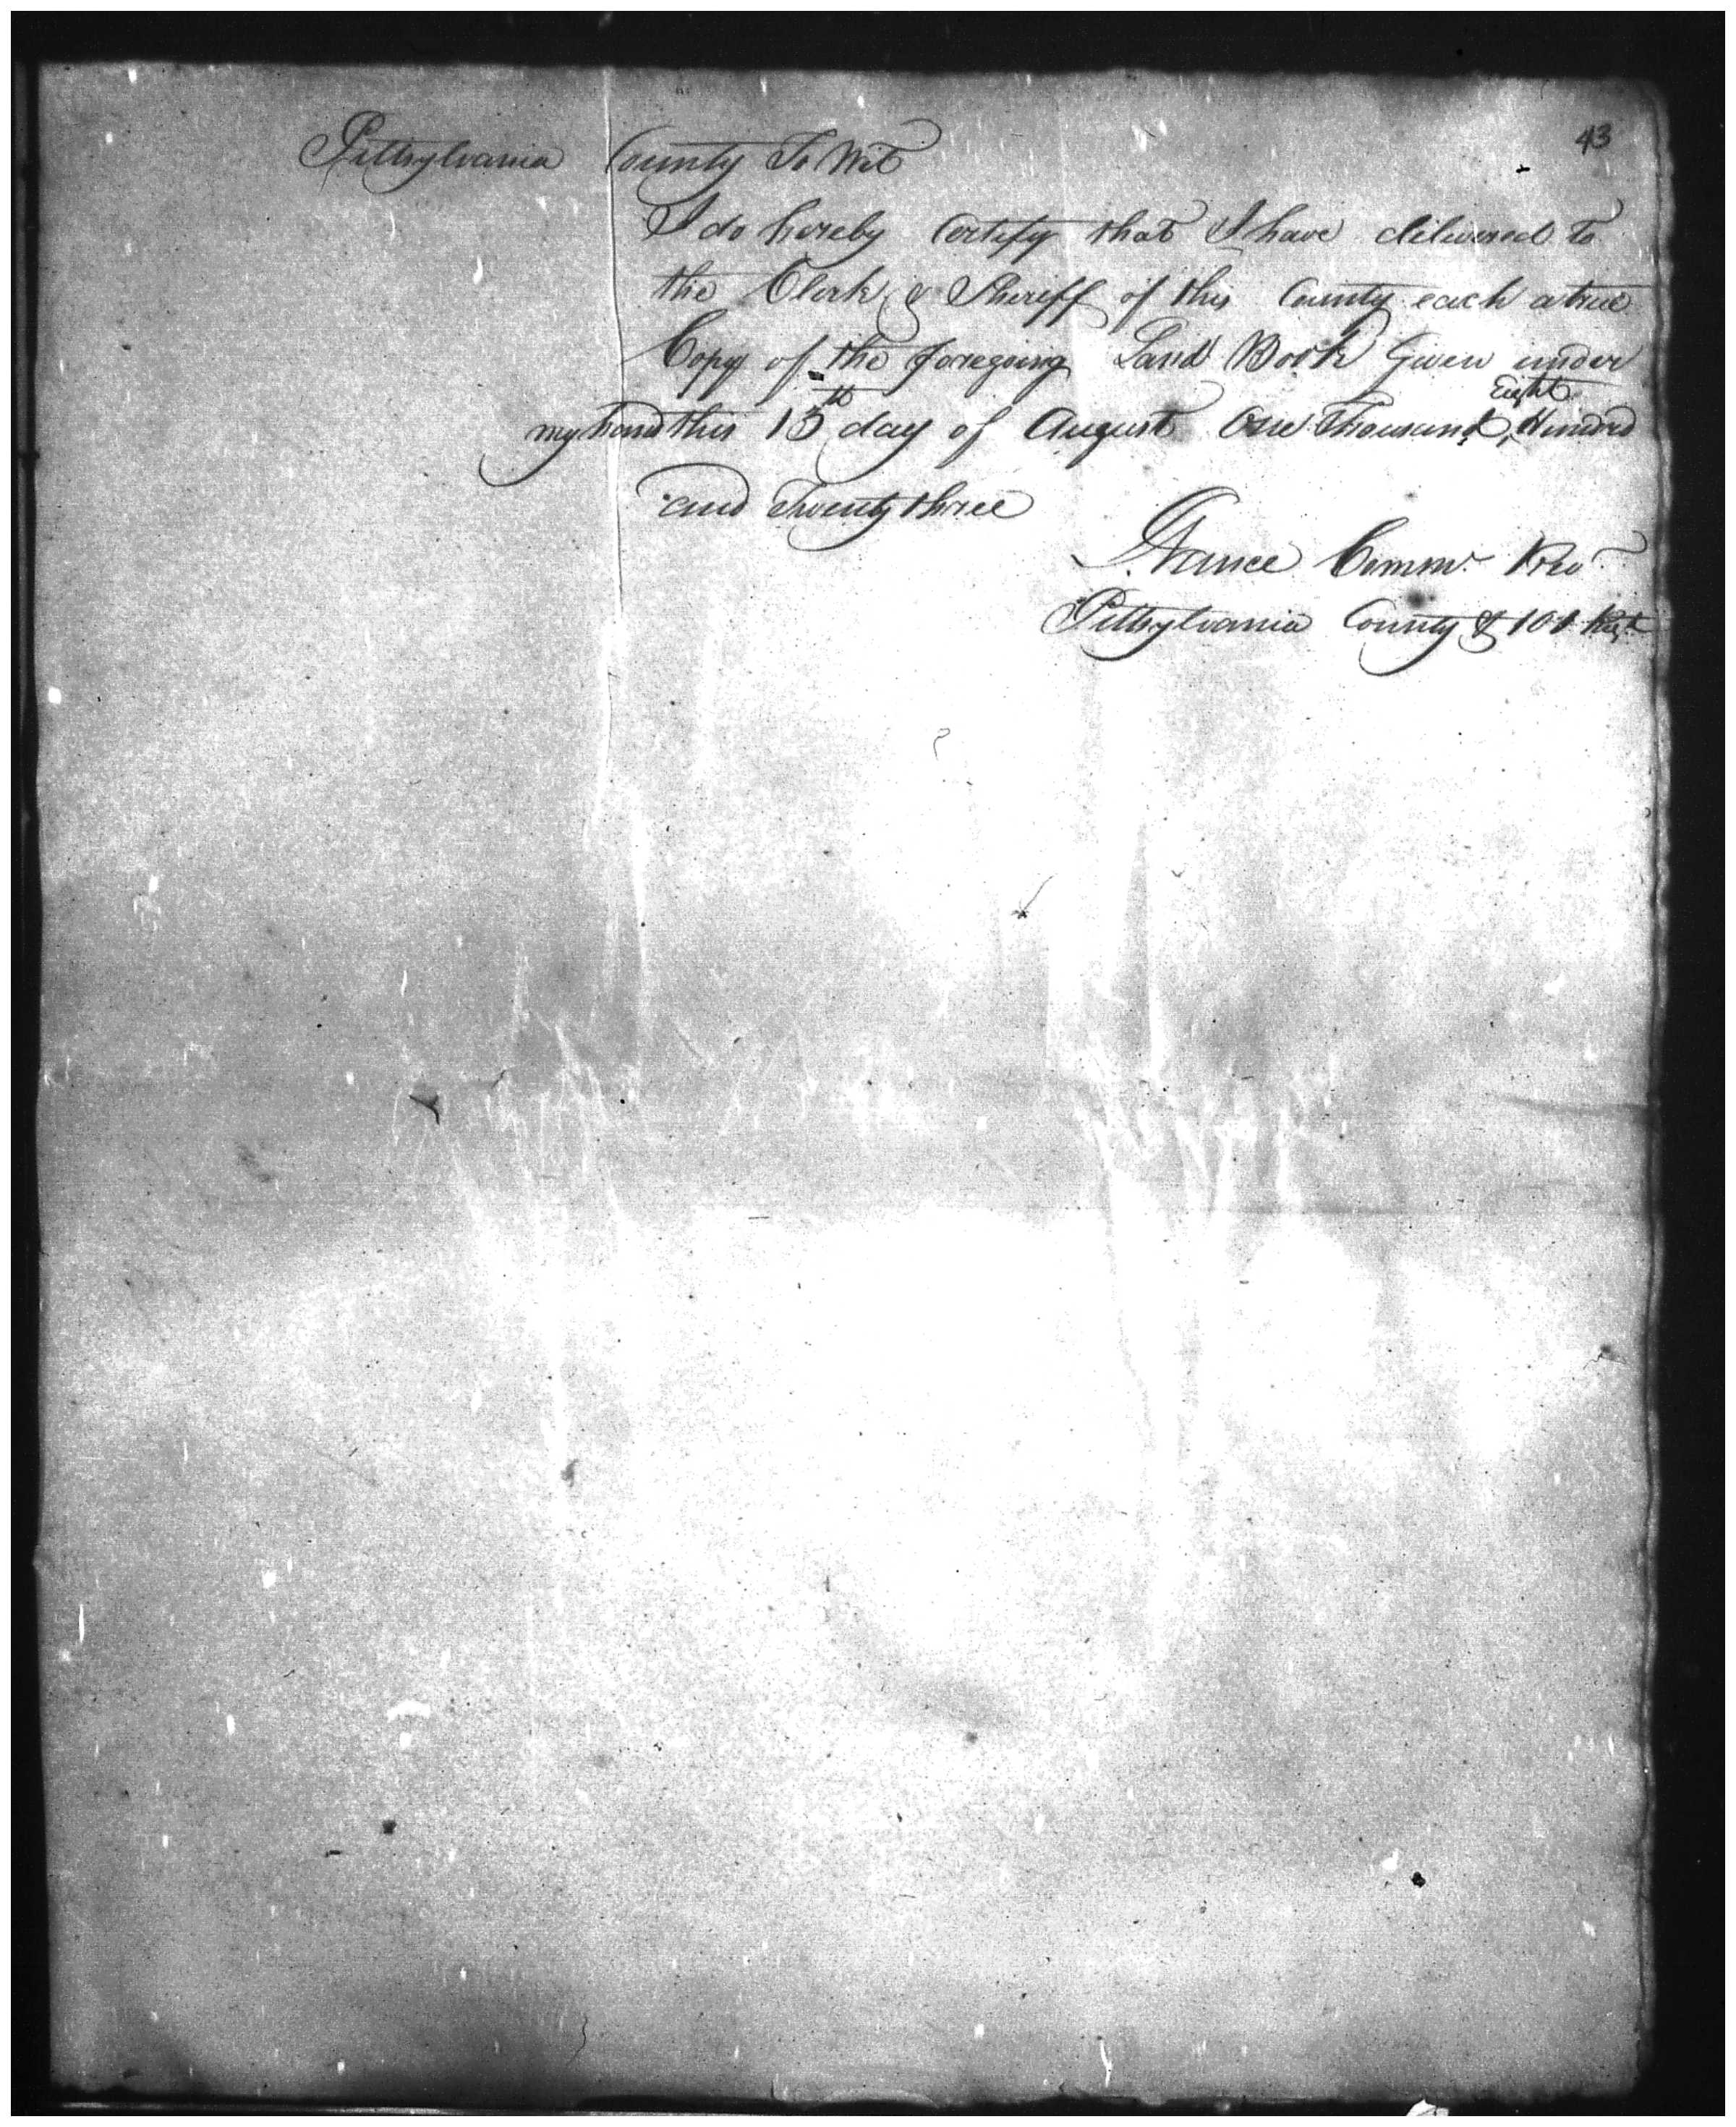 43
Pittsylvania County To Wit
I do hereby Certify that I have delivered to
the Clerk & Sheriff of this County each a true
Copy of the foregoing Land Book Given under
my hand this 15th day of August One Thousand, Eight Hundred
and Twenty three
Nance Commr. Rev
Pittsylvania County & 101 Regt